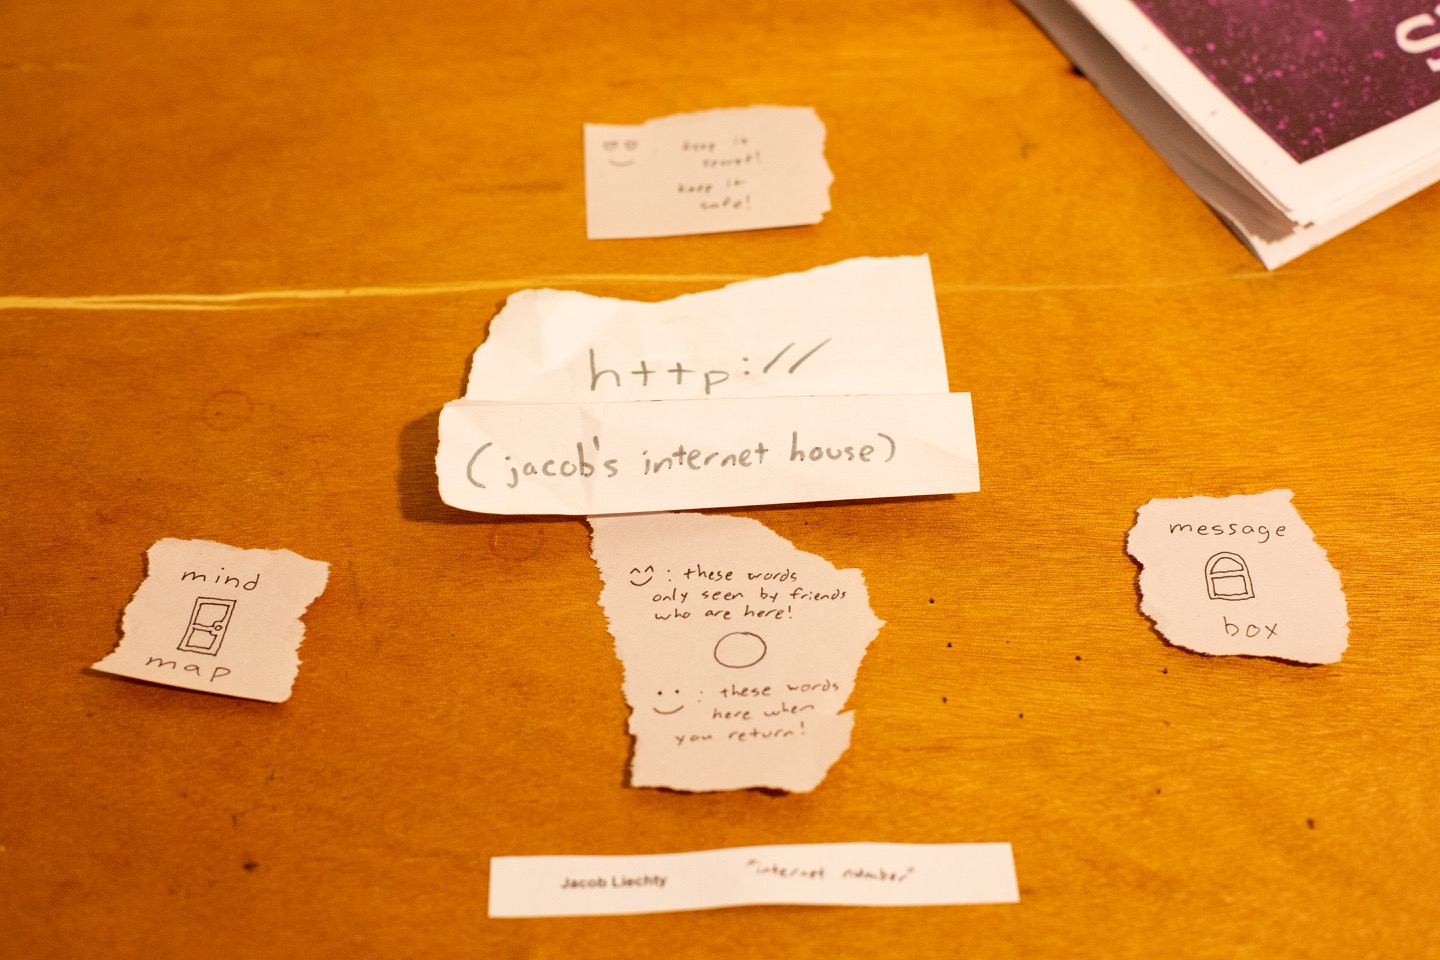 keep it
secret!
keep it
safe!
http://
(jacob's internet house)
mind
map
: these words
only seen by friends
who are here!
: these words
here when
you return!
message
box
Jacob Liechty "internet number"